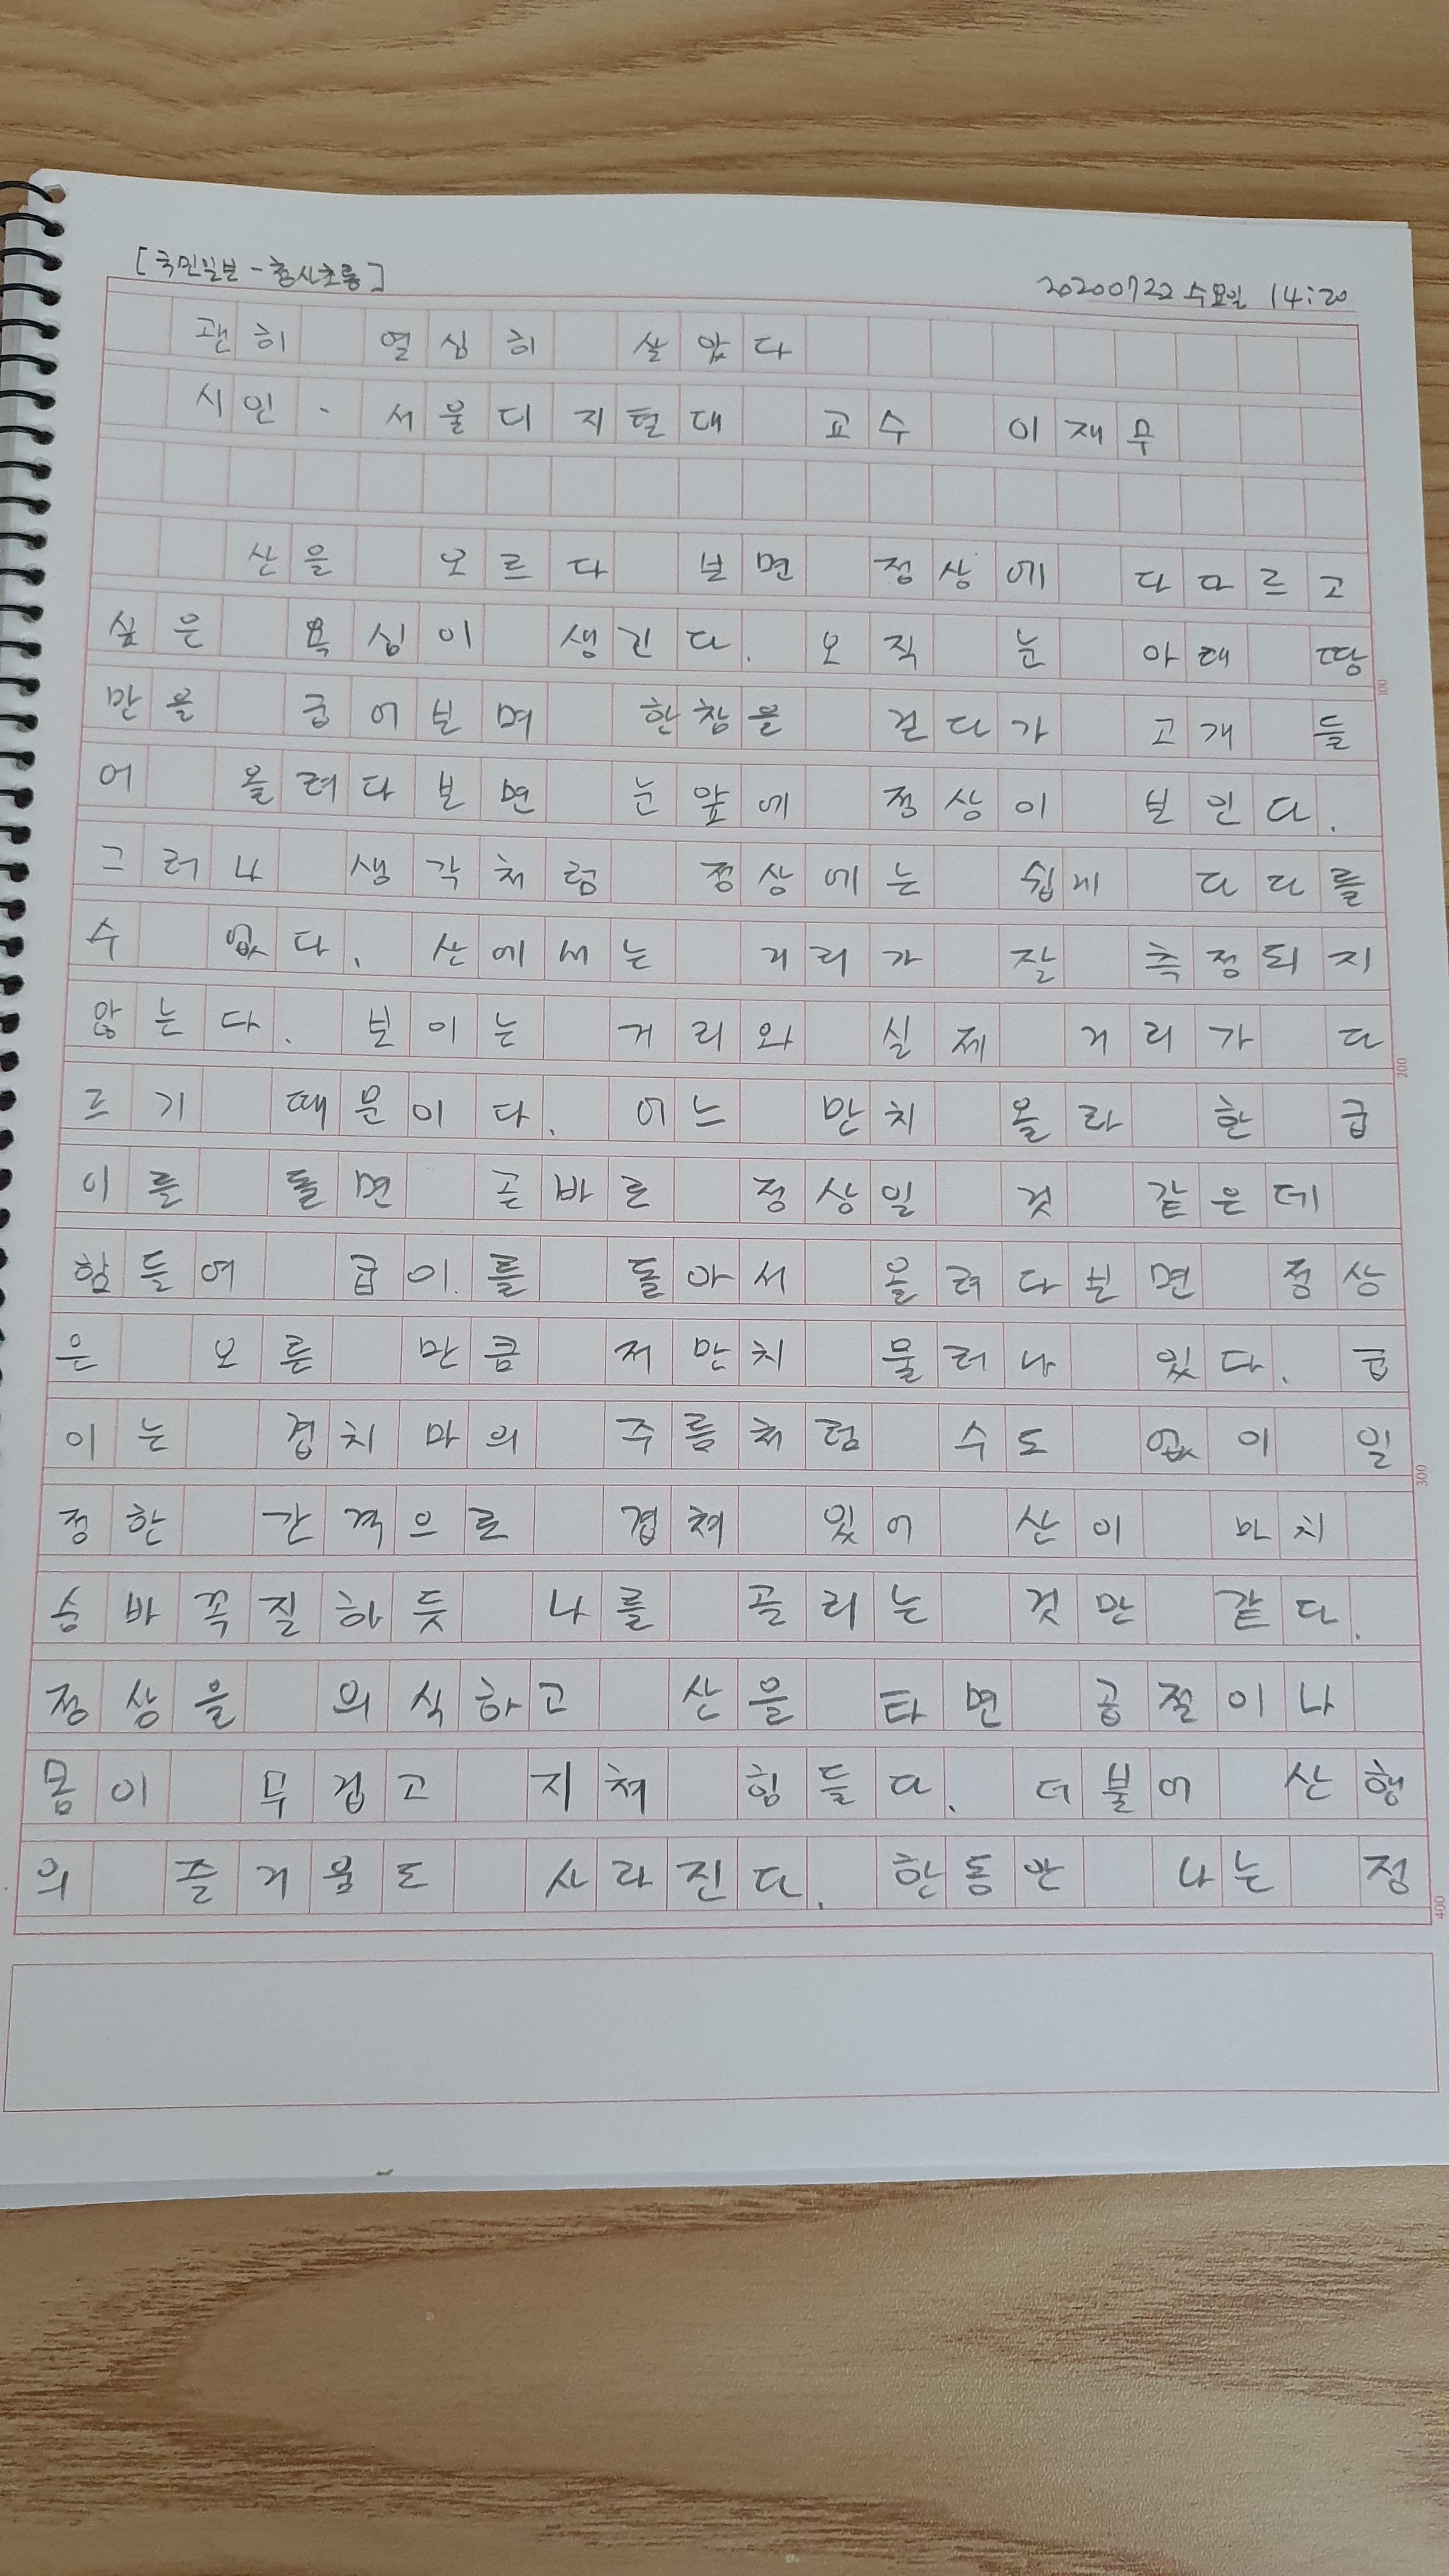 [국민일보 - 청사초롱]
20200722 수요일 14:20
괜히 열심히 살았다
시인 - 서울디지털대 교수 이재무
산을 오르다 보면 정상에 다다르고
싶은 욕심이 생긴다. 오직 눈 아래 땅
만을 굽어보며 한참을 걷다가 고개 들
어 올려다보면 눈앞에 정상이 보인다.
그러나 생각처럼 정상에는 쉽게 다다를
수 없다. 산에서는 거리가 잘 측정되지
않는다. 보이는 거리와 실제 거리가 다
르기 때문이다. 어느 만치 올라 한 굽
이를 돌면 곧바로 정상일 것 같은데
힘들여 굽이를 돌아서 올려다보면 정상
은 오른 만큼 저만치 물러나 있다. 굽
이는 겹치마의 주름처럼 수도 없이 일
정한 간격으로 겹쳐 있어 산이 마치
숨바꼭질하듯 나를 골리는 것만 같다.
정상을 의식하고 산을 타면 곱절이나
몸이 무겁고 지쳐 힘들다. 더불어 산행
의 즐거움도 사라진다. 한동안 나는 정
100
200
300
400